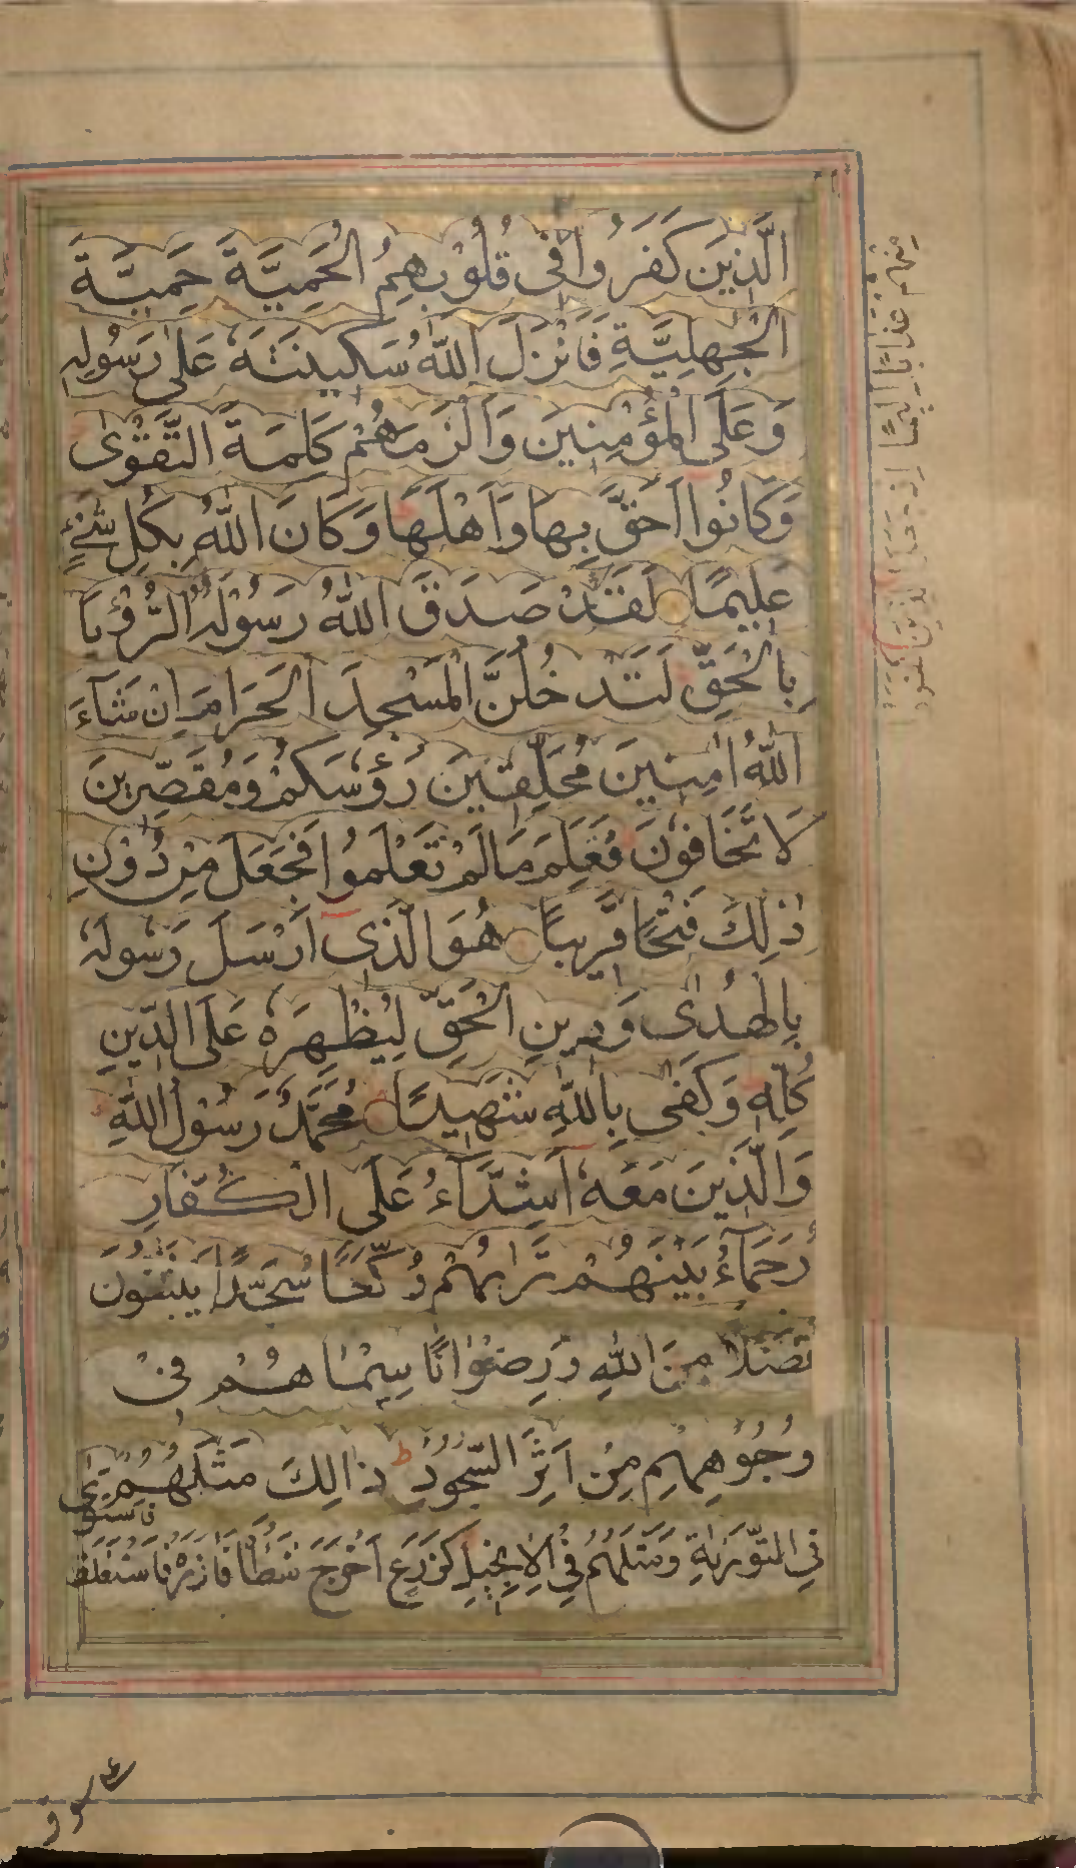 الَّذِينَ كَفَرُوا فِى قُلُوْبِهِمُ الْحَمِيَّةَ حَمِيَّةَ
الْجٰهِلِيَّةِ فَاَنْزَلَ اللّٰهُ سَكِينَتَهٗ عَلٰى رَسُولِهٖ
وَعَلَى الْمُؤْمِنِينَ وَاَلْزَمَهُمْ كَلِمَةَ التَّقْوٰى
وَكَانُوا اَحَقَّ بِهَا وَاَهْلَهَا وَكَانَ اللّٰهُ بِكُلِ شَيْءٍ
عَلِيمًا لَقَدْ صَدَقَ اللّٰهُ رَسُوْلَهُ الرُّءْيَا
بِالْحَقِّ لَتَدْخُلُنَّ الْمَسْجِدَ الْحَرَامَ اِنْ شَاءَ
اللّٰهُ اٰمِنِينَ مُحَلِّقِينَ رُؤُسَكُمْ وَمُقَصِّرِينَ
لَا تَخَافُوْنَ فَعَلِمَ مَا لَمْ تَعْلَمُوا فَجَعَلَ مِنْ دُوْنِ
ذٰلِكَ فَتْحًا قَرِيبًا هُوَ الَّذِى اَرْسَلَ رَسُولَهٗ
بِالْهُدٰى وَدِينِ الْحَقِّ لِيُظْهِرَهٗ عَلَى الدِّينِ
كُلِّهٖ وَكَفٰى بِاللّٰهِ شَهِيدًا مُحَمَّدٌ رَسُوْلُ اللّٰهِ
وَالَّذِينَ مَعَهٗ اَشِدَّآءُ عَلَى الْكُفَّارِ
رُحَمَآءُ بَيْنَهُمْ تَرٰىهُمْ رُكَّعًا سُجَّدًا يَبْتَغُوْنَ
فَضْلًا مِنَ اللّٰهِ وَرِضْوٰانًا سِيْمَاهُمْ فِىْ
وُجُوْهِهِمْ مِنْ اَثَرِ السُّجُوْدِ ط ذٰالِكَ مَثَلُهُمْ
فِى التَّوْرٰىةِ وَمَثَلُهُمْ فِى الْاِنْجِيلِ كَزَرْعٍ اَخْرَجَ شَطْأَهٗ فَاٰزَرَهٗ فَاسْتَغْلَظَ
فاستوى
مِنْهُمْ عَذَابًا اَلِيمًا اِذْ جَعَلَ الَّذِينَ كَفَرُوا